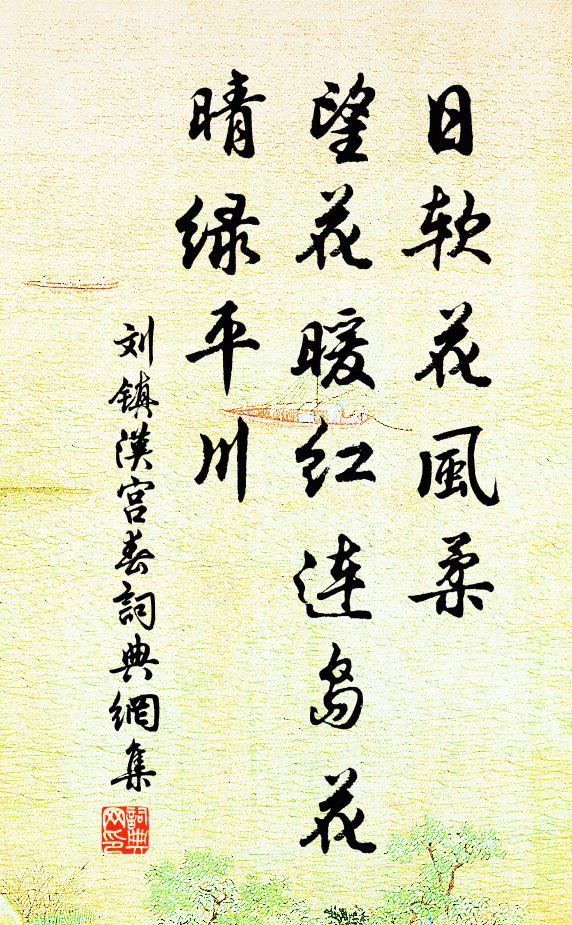 日软花風柔
望花暖红连岛花
晴绿平川
刘镇漢宫春詞典網集
詞典网印